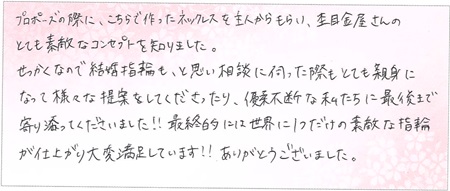 プロポーズの際に、こちらで作ったネックレスを主人からもらい、杢目金屋さんの
とても素敵なコンセプトを知りました。
せっかくなので結婚指輪も、と思い相談に伺った際もとても親身に
なって様々な提案をしてくださったり、優柔不断な私たちに最後まで
寄り添ってくださいました!! 最終的には世界に1つだけの素敵な指輪
が仕上がり大変満足しています!! ありがとうございました。